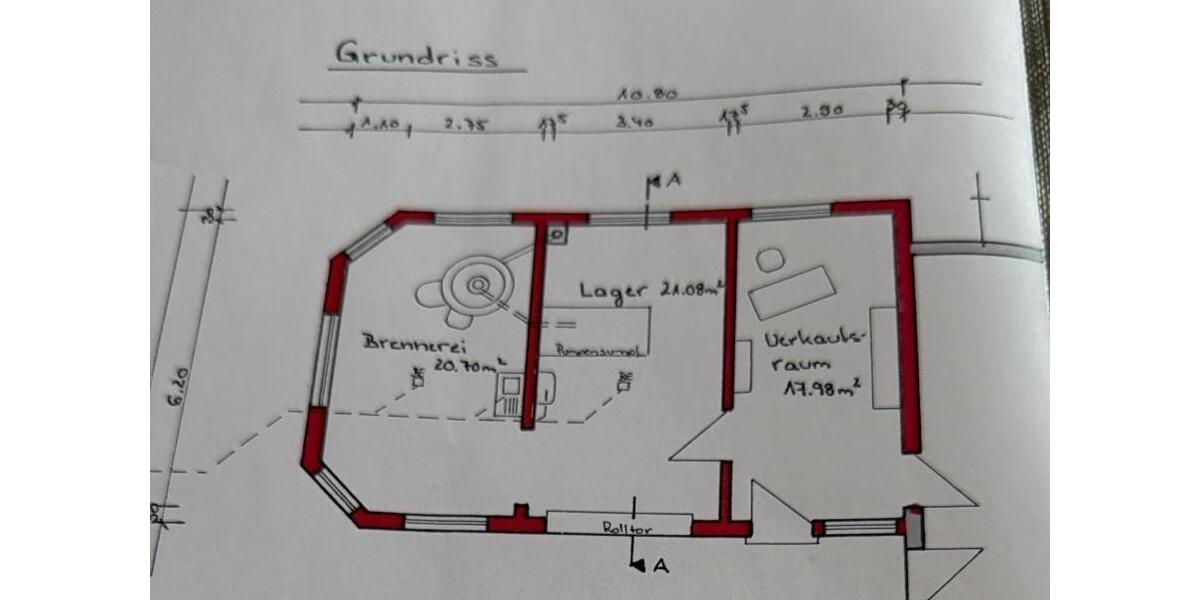 Grundriss
10.80
1.10 2.75 17⁵ 3.40 17⁵ 2.90 30
A
30
Lager 21.08m²
Brennerei
20.70m²
Pumpensumpf
Verkaufs-
raum
17.98m²
BE
BE
6.20
30
Rolltor
A